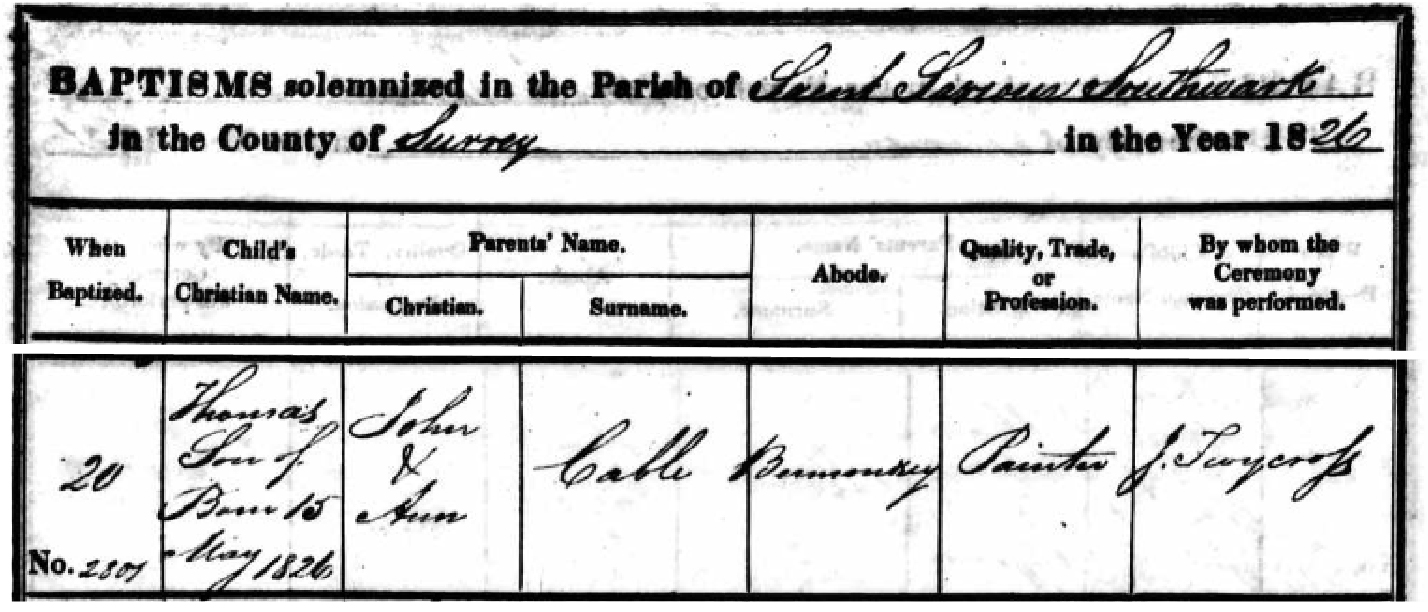 BAPTISMS solemnized in the Parish of Saint Saviour Southwark
in the County of Surrey in the Year 1826
When Baptized.
Child's Christian Name.
Parents' Name.
Christian.
Surname.
Abode.
Quality, Trade, or Profession.
By whom the Ceremony was performed.
20
No.
Thomas
Son of
Born 15
May 1826
John
&
Ann
Cable
Bermondsey
Painter
J. Twycross